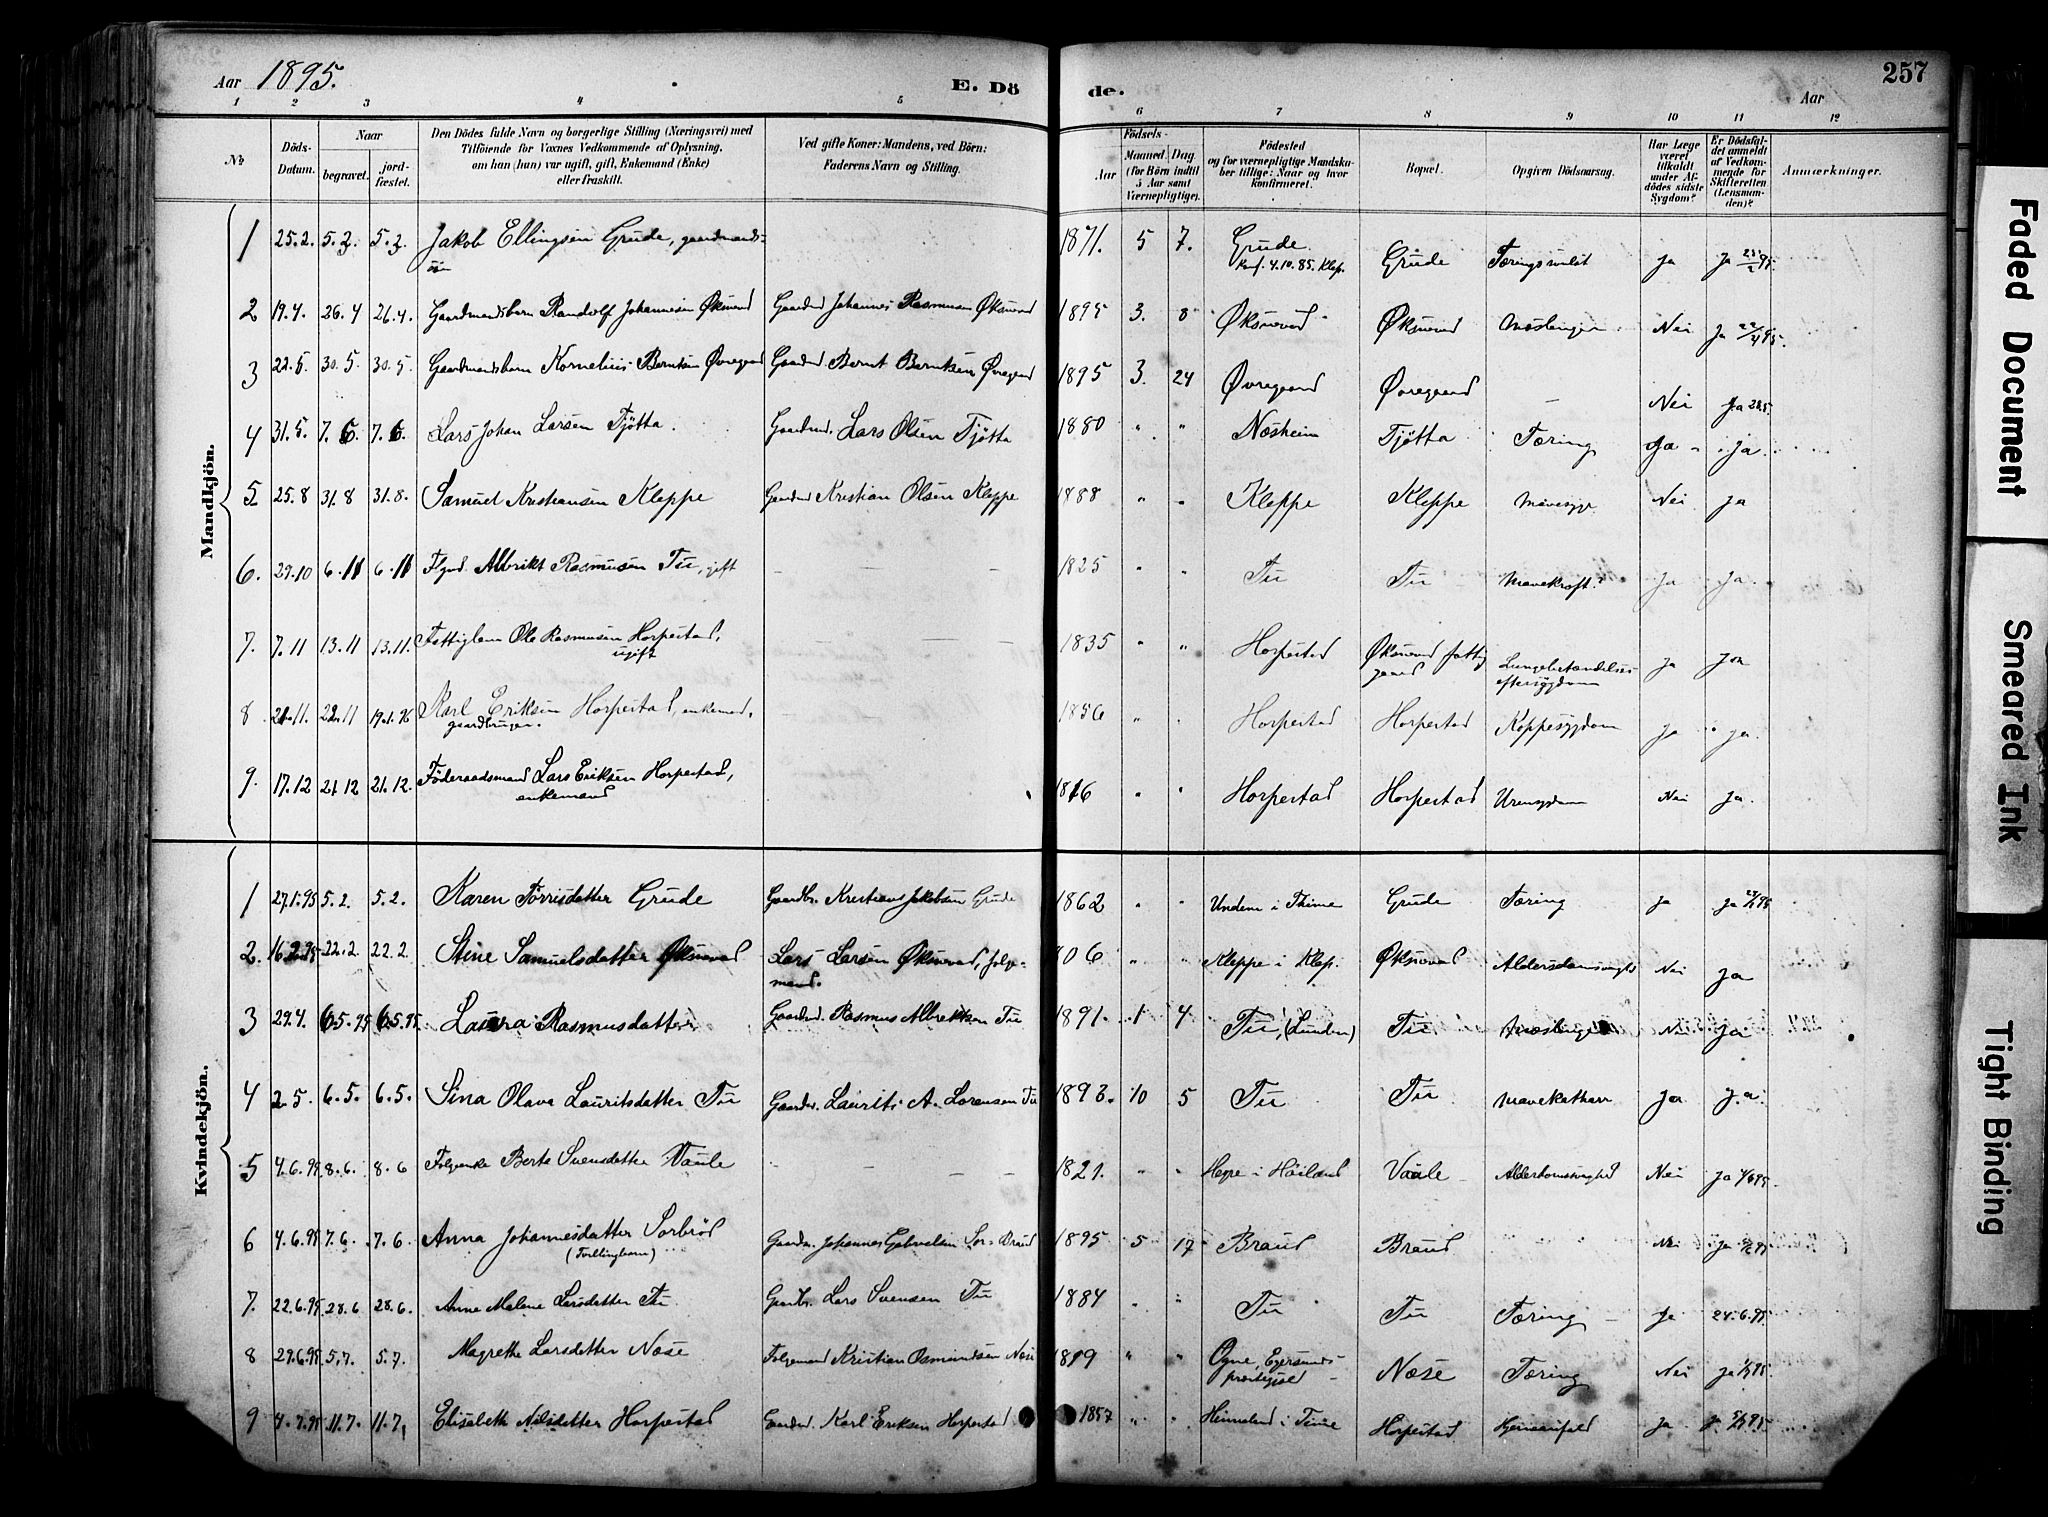 Aar 1895. E. Dö de. Aar 257
1 2 3 4 5 6 7 8 9 10 11 12
No
Döds-Datum.
Naar
begravet.
jord-fæstet.
Den Dödes fulde Navn og borgerlige Stilling (Næringsvei) med
Tilföiende for Voxnes Vedkommende af Oplysning,
om han (hun) var ugift, gift, Enkemand (Enke)
eller fraskilt.
Ved gifte Koner: Mandens, ved Börn:
Faderens Navn og Stilling.
Födsels-
Aar
Maaned. Dag
(for Börn indtil
5 Aar samt
Værnepligtige).
Födested
og for værnepligtige Mandska-
ber tillige: Naar og hvor
konfirmeret.
Bopæl.
Opgiven Dödsaarsag.
Har Læge
været
tilkaldt
under Af-
dödes sidste
Sygdom?
Er Dödsfal-
det anmeldt
af Vedkom-
mende for
Skifteretten
(Lensman-
den)?
Anmærkninger.
Mandkjön.
1 25.2. 5.3. 5.3. Jakob Ellingsen Grude, gaardmands- 1871. 5 7. Grude. Grude Tæringssvulst Ja Ja 25/2 95.
sön Konf. 4.10.85. Klep.
2 19.4. 26.4 26.4. Gaardmandsbarn Randolf Johannesen Øksnevad Gaardmd Johannes Rasmusen Øksnevad 1895 3. 8 Øksnevad Øksnevad Mæslinger Nei Ja 22/4 95.
3 22.5. 30.5. 30.5. Gaardmandsbarn Kornelius Berntsen Øvregaard Gaardmd Bernt Berntsen Øvregaard 1895 3. 24 Øvregaard Øvregaard — Nei Ja 28.5.
4 31.5. 7.6. 7.6. Lars Johan Larsen Tjøtta. Gaardmd. Lars Olsen Tjøtta 1880 " " Næsheim Tjøtta Tæring Ja Ja.
5 25.8 31.8 31.8. Samuel Kristiansen Kleppe Gaardmd Kristian Olsen Kleppe 1888 " " Kleppe Kleppe Mavesyge Nei Ja
6. 29.10 6.11 6.11 Flgmd. Albrikt Rasmusen Tu, gift — — 1825 " " Tu Tu Mavekræft. Ja Ja.
7. 7.11 13.11 13.11. Fattiglem Ole Rasmusen Horpestad, — — 1835 " " Horpestad Øksnevad fattig Lungebetændelses Ja Ja
ugift gaard eftersygdom
8 21.11. 22.11 19.1.96 Karl Eriksen Horpestad, enkemd. 1856 " " Horpestad Horpestad Koppesygdom Ja Ja.
gaardbruger.
9. 17.12 21.12 21.12. Föderaadsmand Lars Eriksen Horpestad, 1816 " " Horpestad Horpestad Nei Ja.
enkemand
Kvindekjön.
1 27.1.95 5.2. 5.2. Karen Torrisdatter Grude Gaardbr. Kristians Jakobsen Grude 1862 " " Undem i Thime Grude Tæring Ja Ja
2. 16.2.95 22.2. 22.2. Stine Samuelsdatter Øksnevad Lars Larsen Øksnevad, folge- 806 " " Kleppe i Klep. Øksnevad Alderdomssvaghed Nei Ja
mand.
3 29.4. 6.5.95 6.5.95. Laura Rasmusdatter Gaardmd. Rasmus Albrektsen Tu 1891. 1 4 Tu, (Lunden) Tu Mæslinger Nei Ja.
4 2.5. 6.5. 6.5. Sina Olava Lauritsdatter Tu Gaardbr. Laurits A. Lorensen Tu 1893. 10 5 Tu Tu Mavekatharr Ja Ja.
5 4.6.95 8.6. 8.6 Folgenke Berta Svensdatter Vaule — — 1821. " " i Høiland Vaule Alderdomssvaghed Nei Ja
6 4.6.95 7.6. 7.6. Anna Johannesdatter Sorbröd Gaardbr. Johannes Gabrielsen Sör-Braud 1895 5 17 Braud Braud Nei Ja
(Tvillingbarn)
7 22.6.95 28.6 28.6. Anne Malene Larsdatter Tu. Gaardbr. Lars Svensen Tu 1884 " " Tu Tu Tæring Ja 24.6.95.
8 29.6.95 5.7. 5.7. Magrethe Larsdatter Næse Folgemand Kristian Osmundsen Næse 1819 " " Ogne, Egersunds Næse Tæring Nei Ja
præstegjeld
9 4.7.95 11.7. 11.7. Elisabeth Nilsdatter Horpestad Gaardmd. Karl Eriksen Horpestad 1857 " " i Time Horpestad Ja
Faded Document
Smeared Ink
Tight Binding